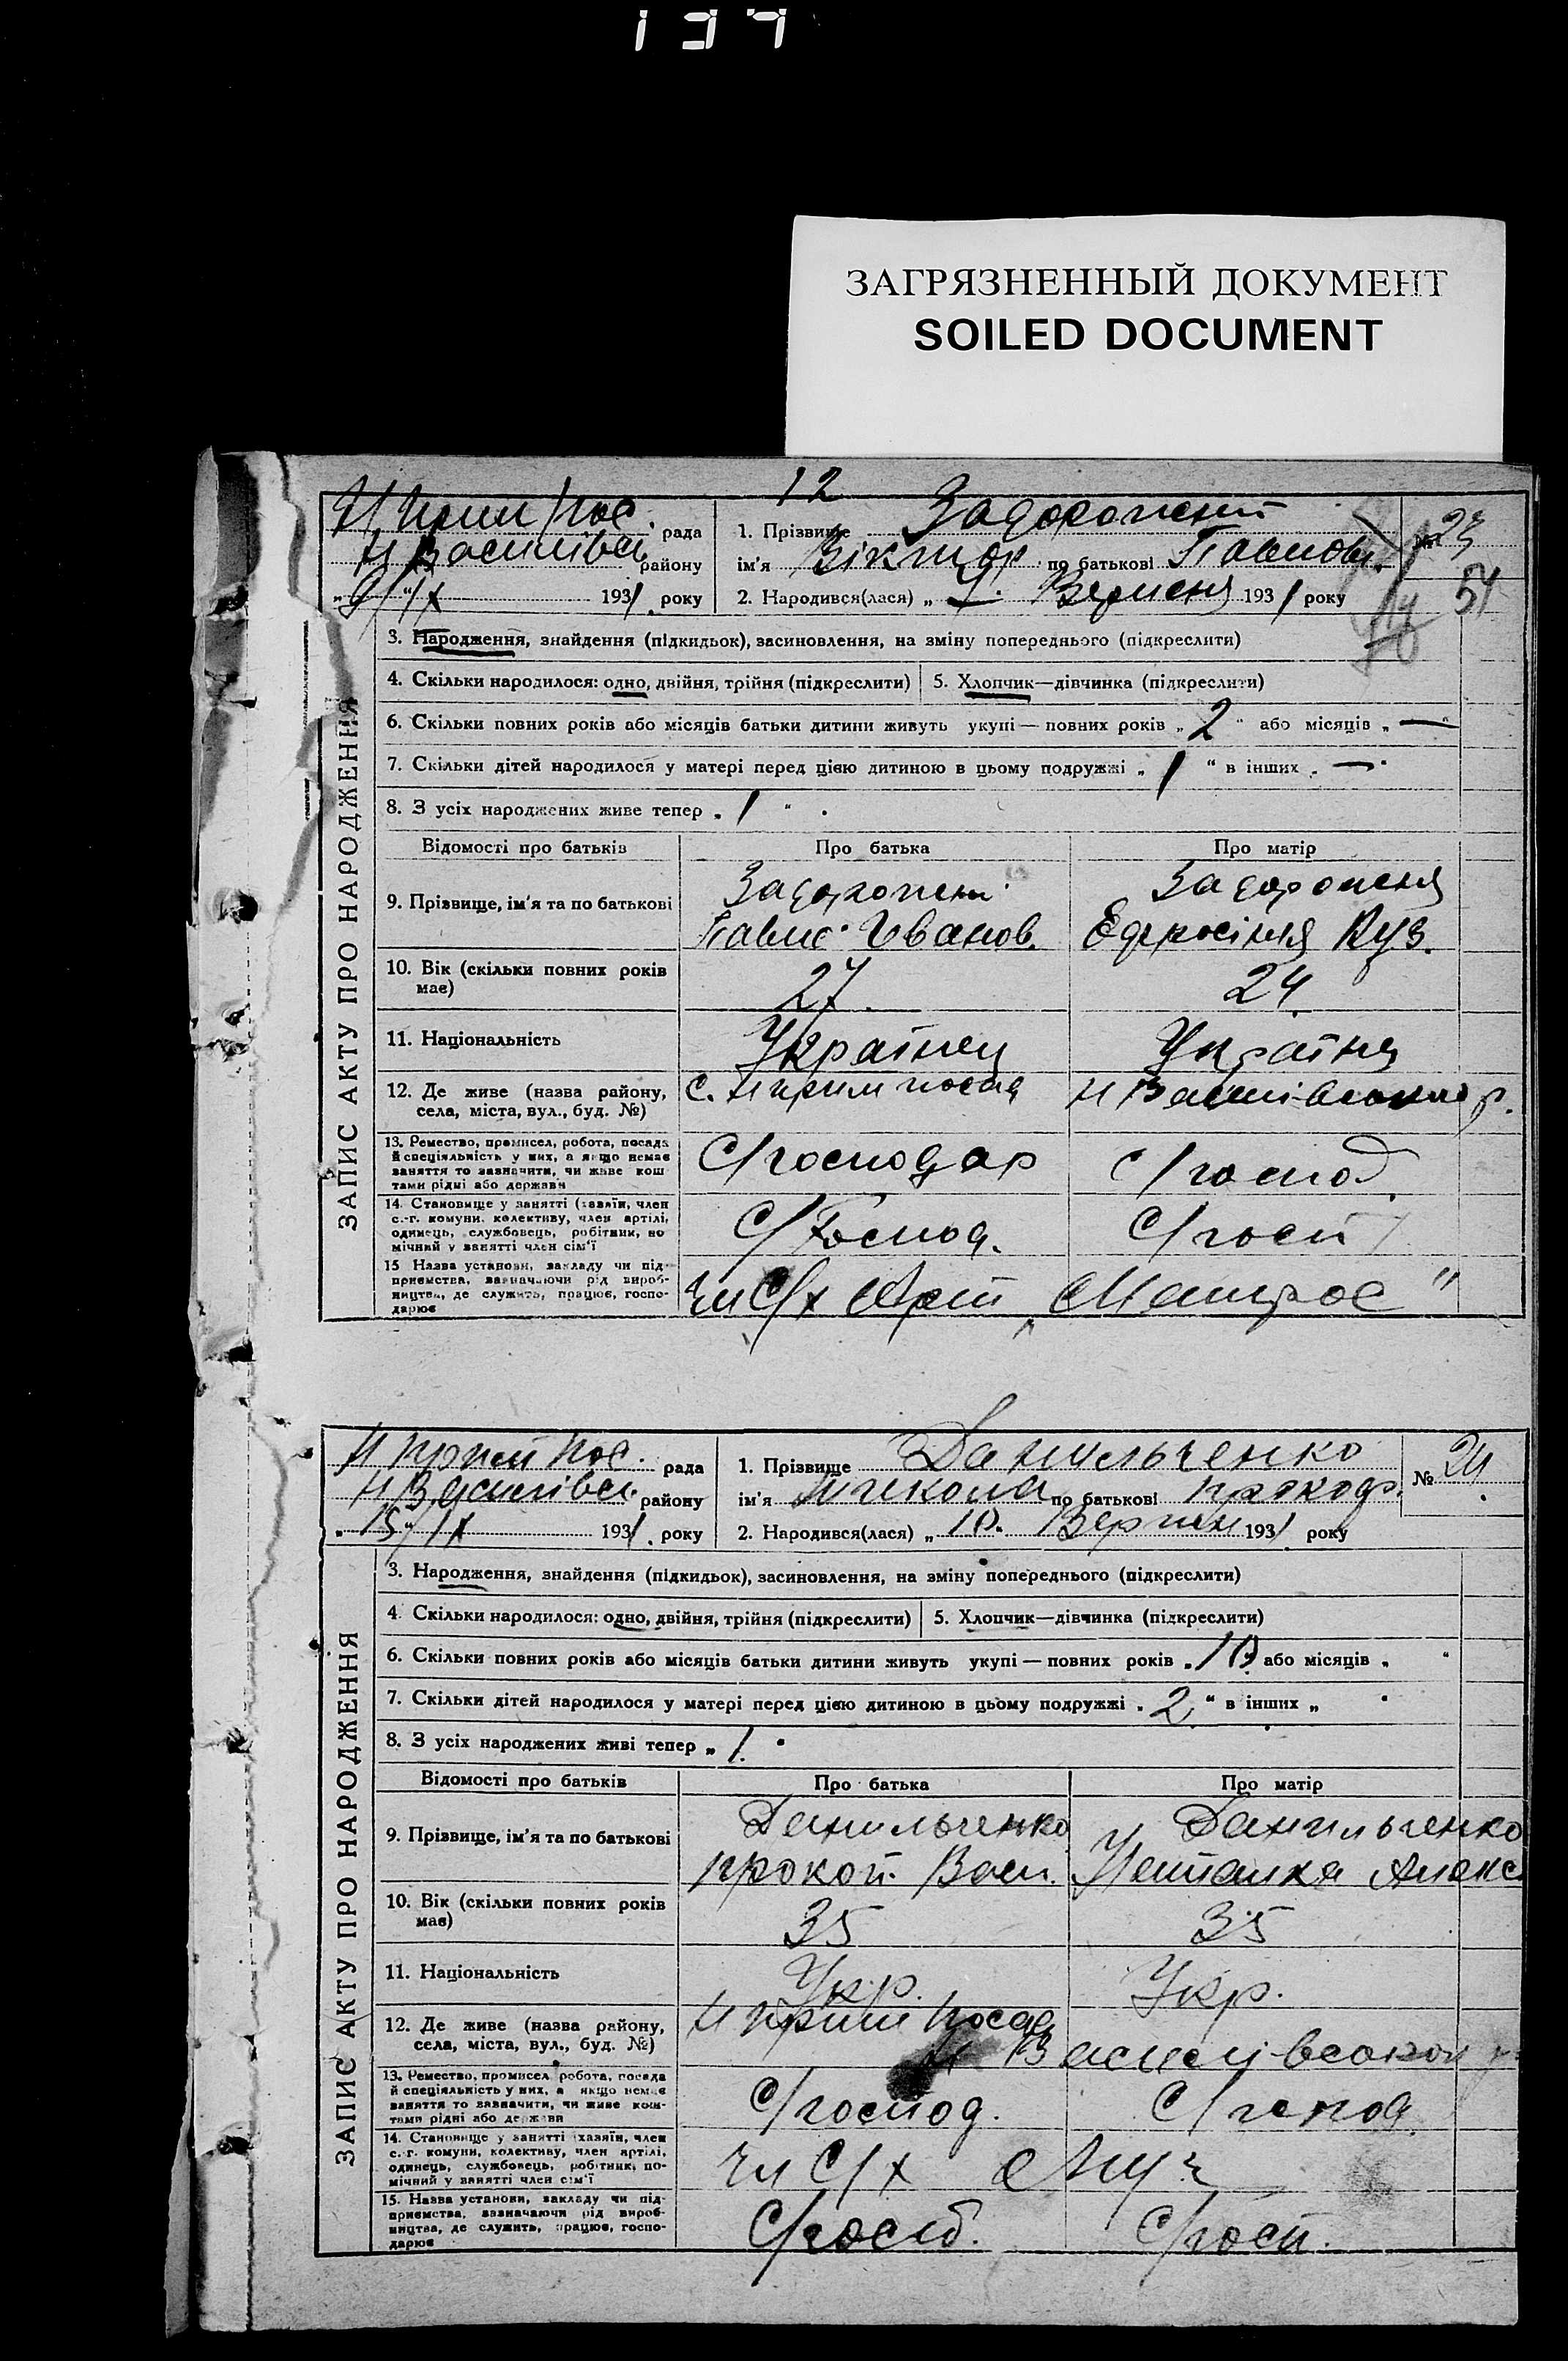 137
ЗАГРЯЗНЕННЫЙ ДОКУМЕНТ
SOILED DOCUMENT
12
ЗАПИС АКТУ ПРО НАРОДЖЕННЯ
рада
Н Василівсь району
9/IX 1931 року
1. Прізвище Задорожний
ім'я Віктор по батькові Павлов.
2. Народився(лася) „ Вересня 1931 року
№ 23
51
3. Народження, знайдення (підкидьок), засиновлення, на зміну попереднього (підкреслити)
4. Скільки народилося: одно, двійня, трійня (підкреслити) 5. Хлопчик—дівчинка (підкреслити)
6. Скільки повних років або місяців батьки дитини живуть укупі — повних років „ 2 “ або місяців „ — “
7. Скільки дітей народилося у матері перед цією дитиною в цьому подружжі „ 1 “ в інших „ — “
8. З усіх народжених живе тепер „ 1 “
Відомості про батьків Про батька Про матір
9. Прізвище, ім'я та по батькові
Задорожний Задорожня
Павло Іванов. Ефросіния Куз.
10. Вік (скільки повних років має) 27 24
11. Національність Українец Українка
12. Де живе (назва району, села, міста, вул., буд. №) с. Н Василівського р.
13. Ремество, промисел, робота, посада й спеціяльність у них, а якщо немає заняття то зазначити, чи живе коштами рідні або держави
С/господар С/господ.
14. Становище у занятті (хазяїн, член с.-г. комуни, колективу, член артілі, одинець, службовець, робітник, помічний у занятті член сім'ї
С/Господ. С/госп
15 Назва установи, закладу чи підприємства, зазначаючи рід виробництва, де служить, працює, господарює
чл С/х Арт „Матрос“
ЗАПИС АКТУ ПРО НАРОДЖЕННЯ
рада
Н Василівсь. району
„15“/IX 1931. року
1. Прізвище Данильченко
ім'я Микола по батькові Прокоф.
2. Народився(лася) „ 10. Верпня 1931 року
№ 24
3. Народження, знайдення (підкидьок), засиновлення, на зміну попереднього (підкреслити)
4. Скільки народилося: одно, двійня, трійня (підкреслити) 5. Хлопчик—дівчинка (підкреслити)
6. Скільки повних років або місяців батьки дитини живуть укупі — повних років „ 10 або місяців „ “
7. Скільки дітей народилося у матері перед цією дитиною в цьому подружжі „ 2 “ в інших „ “
8. З усіх народжених живі тепер „ 1. “
Відомості про батьків Про батька Про матір
9. Прізвище, ім'я та по батькові
Данильченко Данильченко
Прокоп. Вас. Наталка Алекс
10. Вік (скільки повних років має) 35 35
11. Національність Укр. Укр.
12. Де живе (назва району, села, міста, вул., буд. №)
Н Василівського
13. Ремество, промисел, робота, посада й спеціяльність у них, а якщо немає заняття то зазначити, чи живе коштами рідні або держави
С/господ. С/господ.
14. Становище у занятті (хазяїн, член с.-г. комуни, колективу, член артілі, одинець, службовець, робітник, помічний у занятті член сім'ї
чл С/х
15. Назва установи, закладу чи підприємства, зазначаючи рід виробництва, де служить, працює, господарює
С/госп. С/госп.